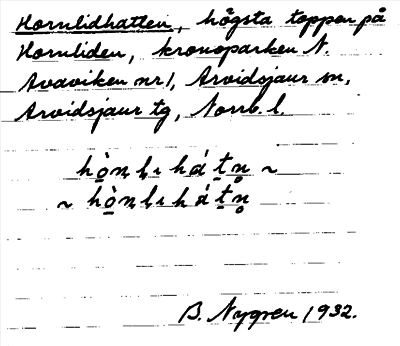 Hornlidhatten, högsta toppen på
Hornliden, kronoparken N.
Avaviken nr 1, Arvidsjaur sn,
Arvidsjaur tg, Norrb. l.
B. Nygren 1932.